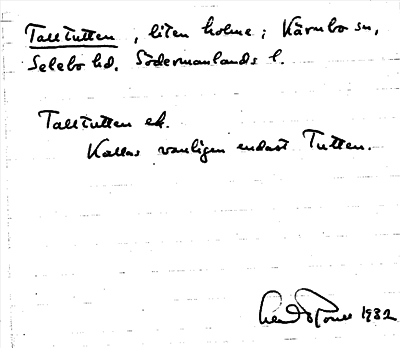 Talltutten, liten holme i Kärnbo sn,
Selebo hd, Södermanlands l.
Talltutten ek.
Kallas vanligen endast Tutten.
1932